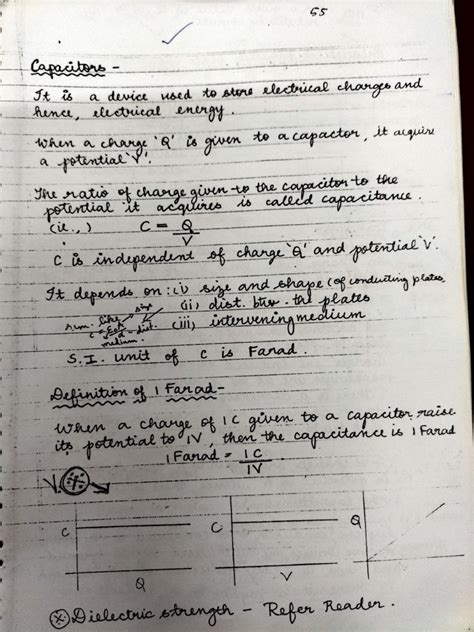 55
Capacitors -
It is a device used to store electrical charges and
hence, electrical energy.
When a charge 'Q' is given to a capactor, it acquire
a potential 'V'.
The ratio of charge given to the capacitor to the
potential it acquires is called capacitance.
(ie.,) C = Q/V
C is independent of charge 'Q' and potential 'V'.
It depends on: (i) size and shape (of conducting plates
(ii) dist. btw. the plates
(iii) intervening medium
size
rem.
dist.
medium.
S.I. unit of C is Farad.
Definition of 1 Farad -
When a charge of 1C given to a capacitor raise
its potential to 1V, then the capacitance is 1 Farad
1 Farad = 1C/1V
C
C
Q
Q
V
Dielectric strength - Refer Reader.